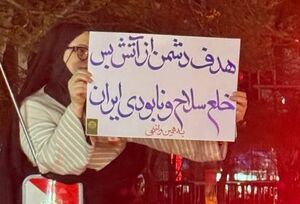 هدف دشمن از آتش بس
خلع سلاح و نابودی ایران